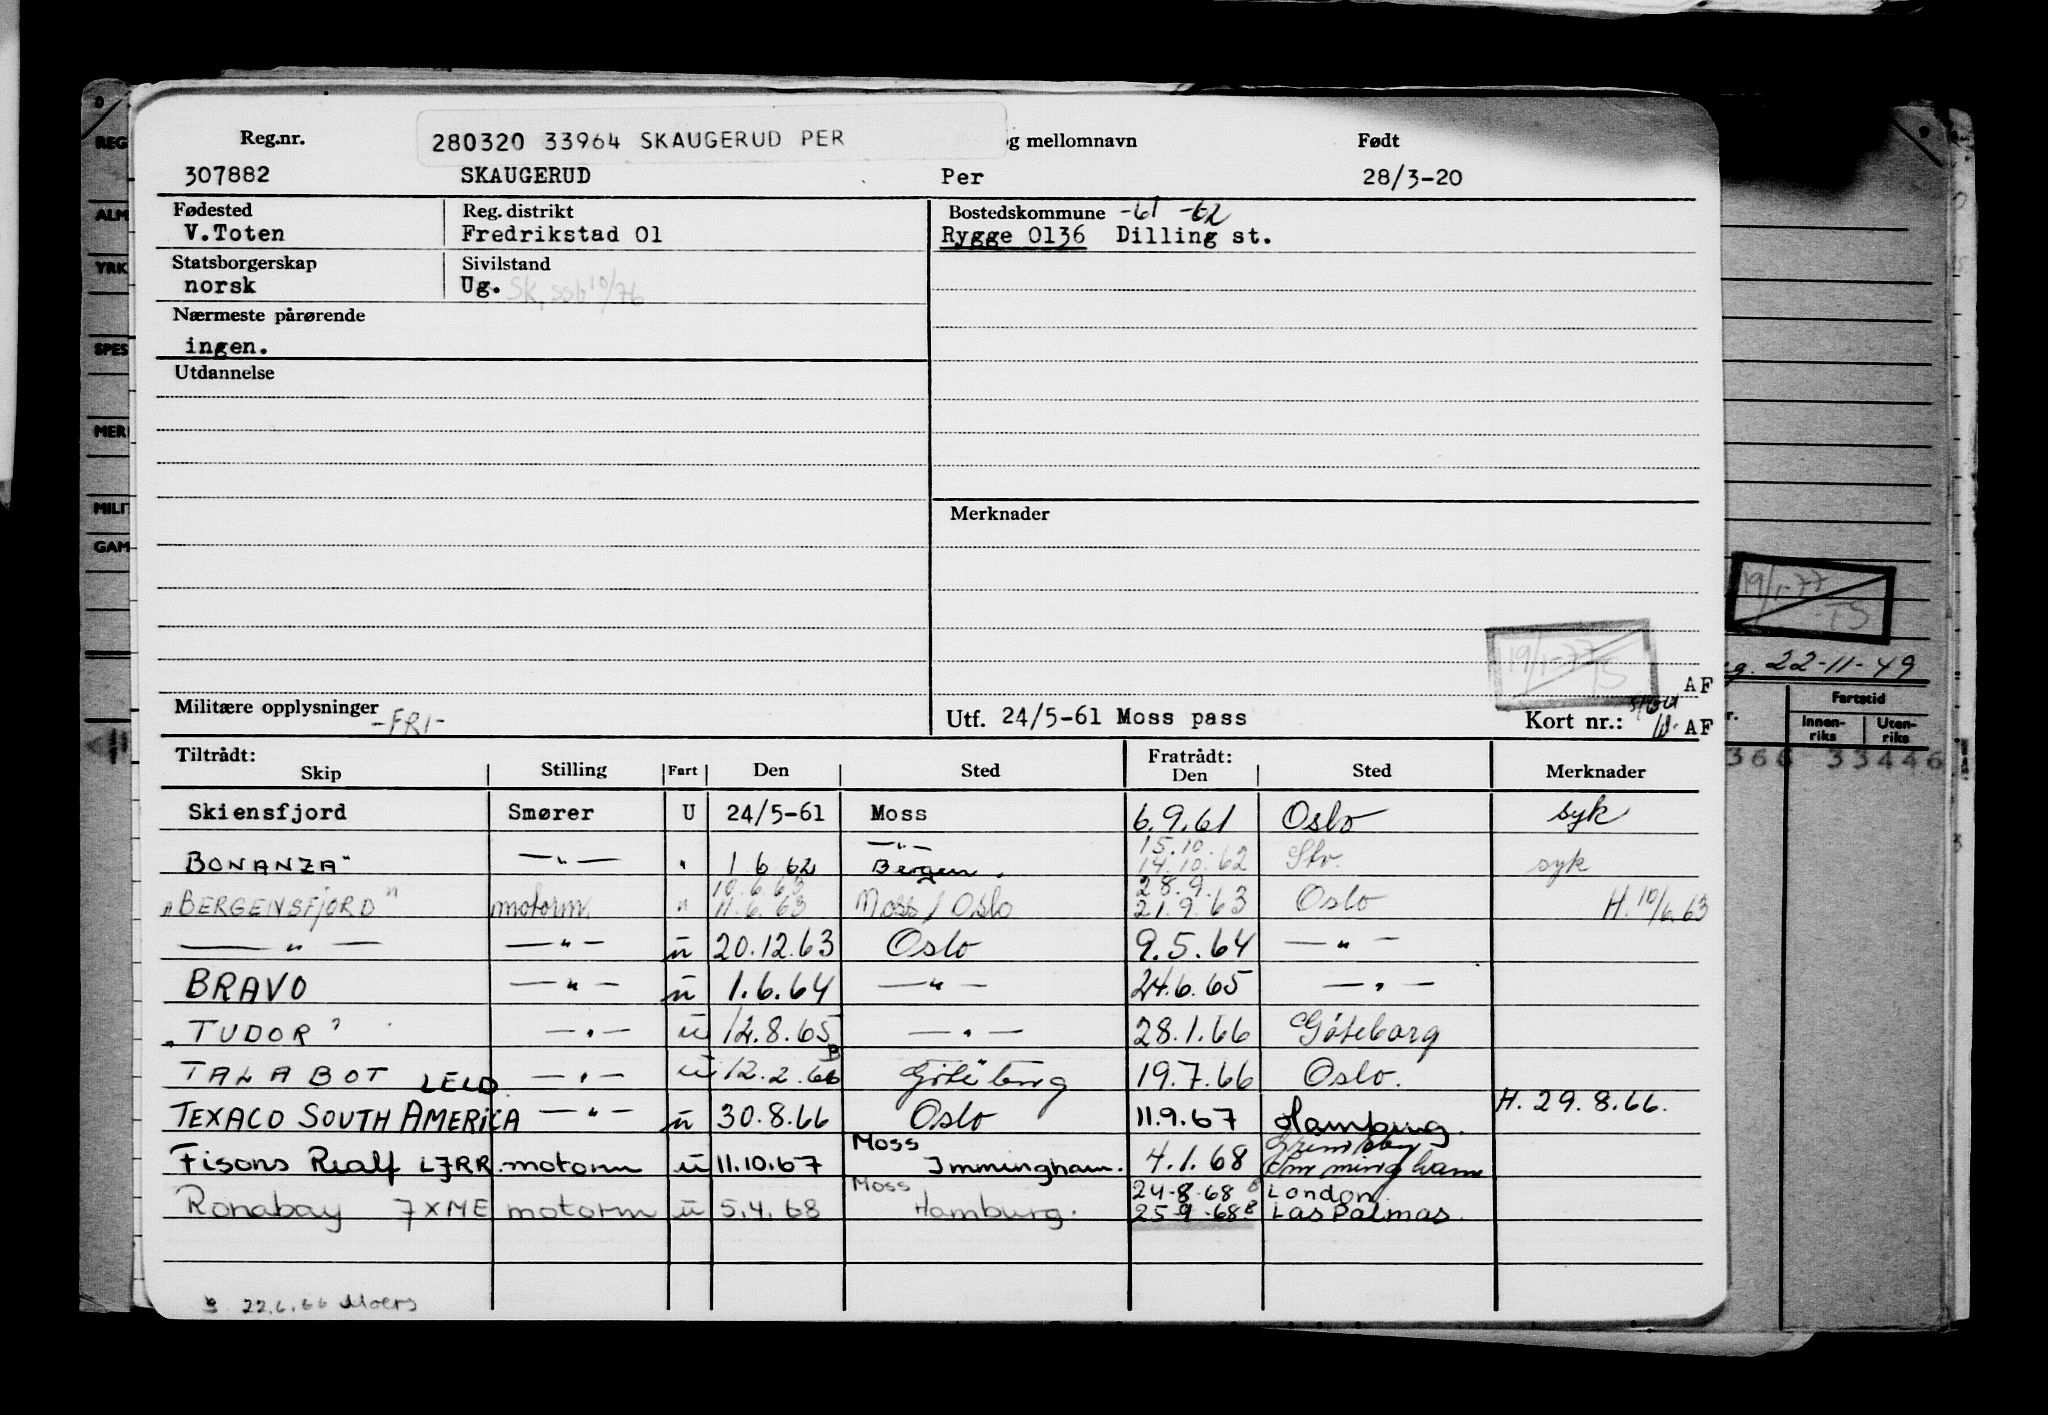 Reg.nr. 280320 33964 SKAUGERUD PER og mellomnavn Født
307882 SKAUGERUD Per 28/3-20
Fødested Reg. distrikt Bostedskommune -61 -62
V.Toten Fredrikstad 01 Rygge 0136 Dilling st.
Statsborgerskap Sivilstand
norsk Ug. Sk, ssb 10/76
Nærmeste pårørende
ingen.
Utdannelse
Merknader
19/1-77 TS
AF
Militære opplysninger -FRI- Utf. 24/5-61 Moss pass Kort nr.: AF
Tiltrådt: Fratrådt:
Skip Stilling Fart Den Sted Den Sted Merknader
Skiensfjord Smører U 24/5-61 Moss 6.9.61 Oslo syk
—"— 15.10.
BONANZA" —"— " 1.6.62 Bergen. 14.10.62 Stv. syk
10.6.63 28.9.
"BERGENSFJORD" motorm. " 11.6.63 Moss / Oslo 21.9.63 Oslo H. 10/6.63
—"— —"— u 20.12.63 Oslo 9.5.64 —"—
BRAVO —"— u 1.6.64 —"— 24.6.65 —"—
"TUDOR" —"— u 12.8.65 —"— 28.1.66 Göteborg
B
TALABOT LELD —"— u 12.2.66 Göteborg 19.7.66 Oslo.
TEXACO SOUTH AMERICA —"— u 30.8.66 Oslo 11.9.67 Hamburg. H. 29.8.66.
Moss Grimsby
Fisons Rialf LJRR. motorm u 11.10.67 Immingham. 4.1.68 Immingham
Moss 24.8.68 B London.
Ronabay 7XME motorm u 5.4.68 Hamburg. 25.9.68 B Las Palmas.
22.6.66
REG
ALM
YRK
SPES
MER
MILIT
GAM
19/1-77 TS
22-11-49
Fartstid
Innenriks Utenriks
366 33446